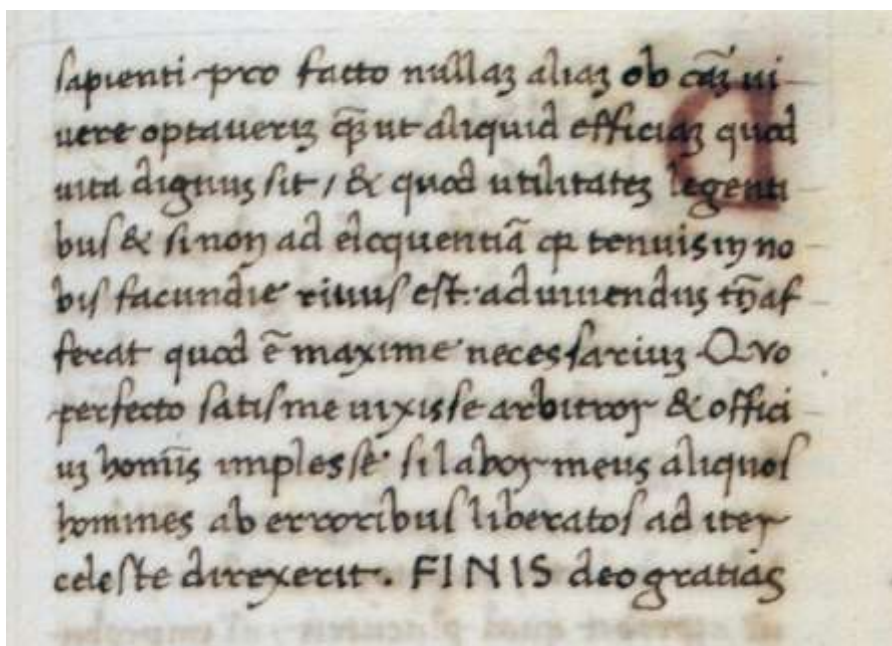 sapienti pro facto nullaꝫ aliaꝫ ob cãꝫ ui
uere optaueriꝫ qꝫ̃ ut aliquid efficiaꝫ quod
uita dignuꝫ sit / & quod utilitateꝫ legenti
bus & si non ad eloquentiã qꝛ tenuis in no
bis facundie riuus est: ad uiuenduꝫ tñ af
ferat quod ẽ maxime necessariuꝫ Quo
perfecto satis me uixisse arbitror & offici
uꝫ homĩs implesse si labor meus aliquos
homines ab erroribus liberatos ad iter
celeste direxerit. FINIS deo gratias